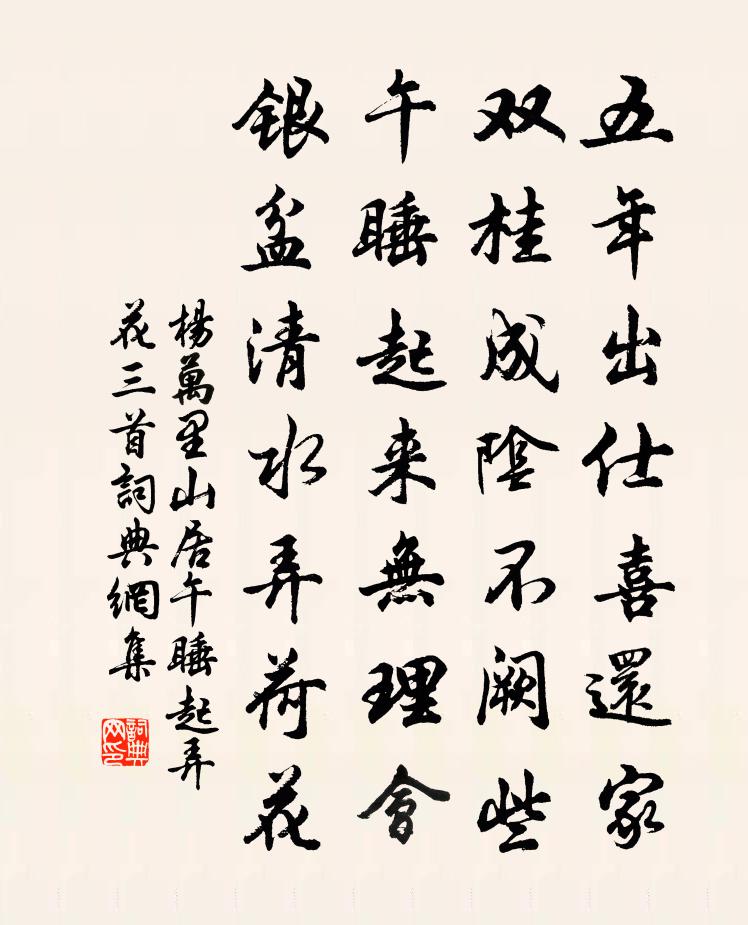 五年出仕喜還家
双桂成陰不阙些
午睡起来無理會
銀盆清水弄荷花
楊萬里山居午睡起弄
花三首詞典網集
詞典网印